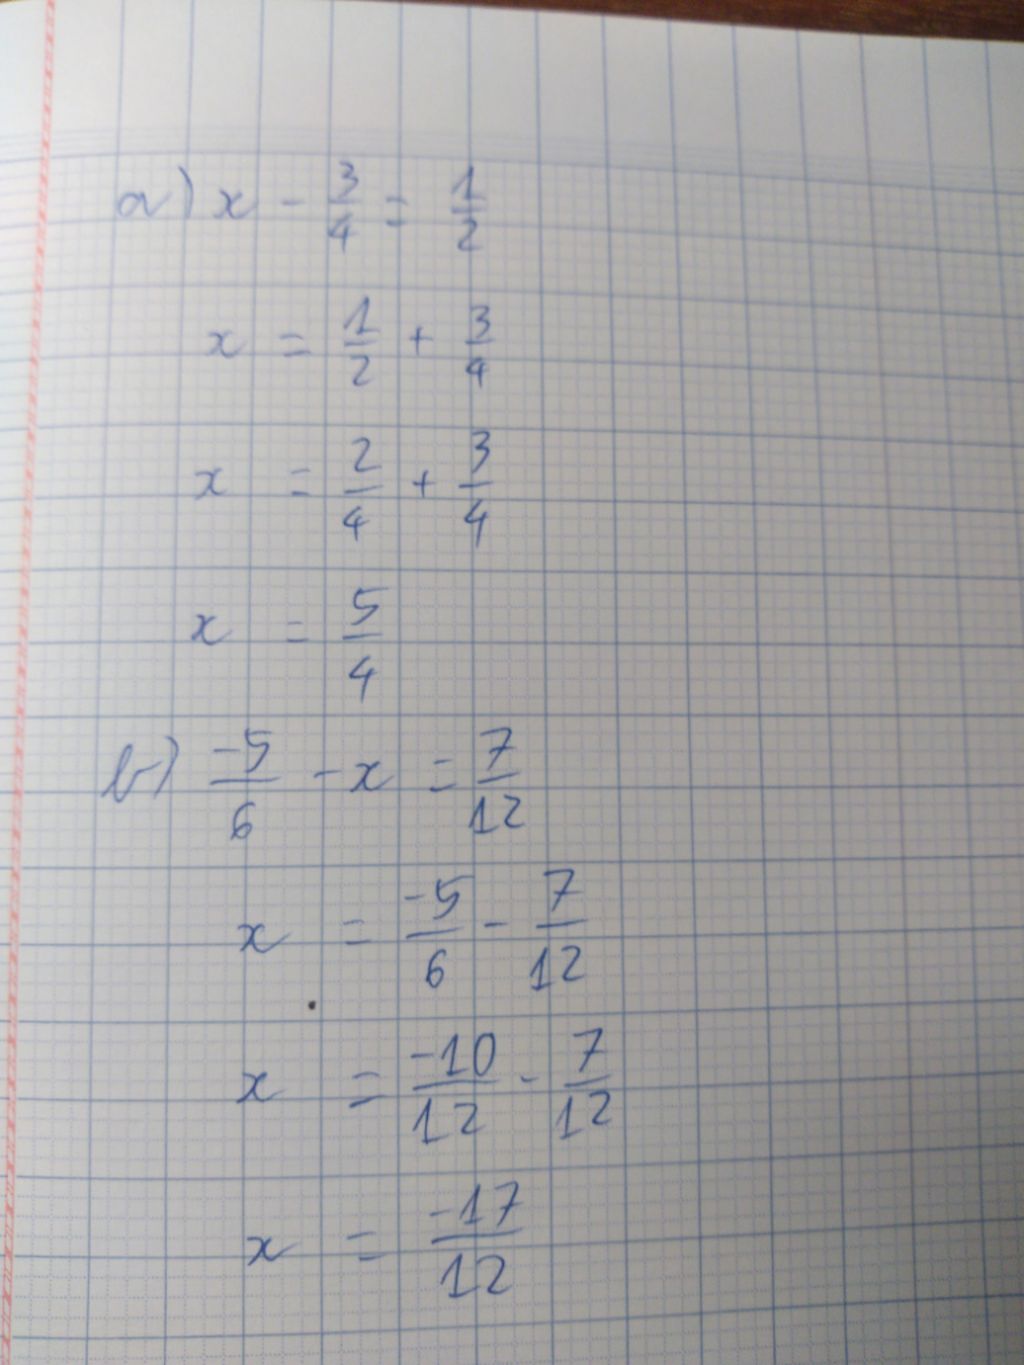 a) x - 3/4 = 1/2
x = 1/2 + 3/4
x = 2/4 + 3/4
x = 5/4
b) -5/6 - x = 7/12
x = -5/6 - 7/12
x = -10/12 - 7/12
x = -17/12